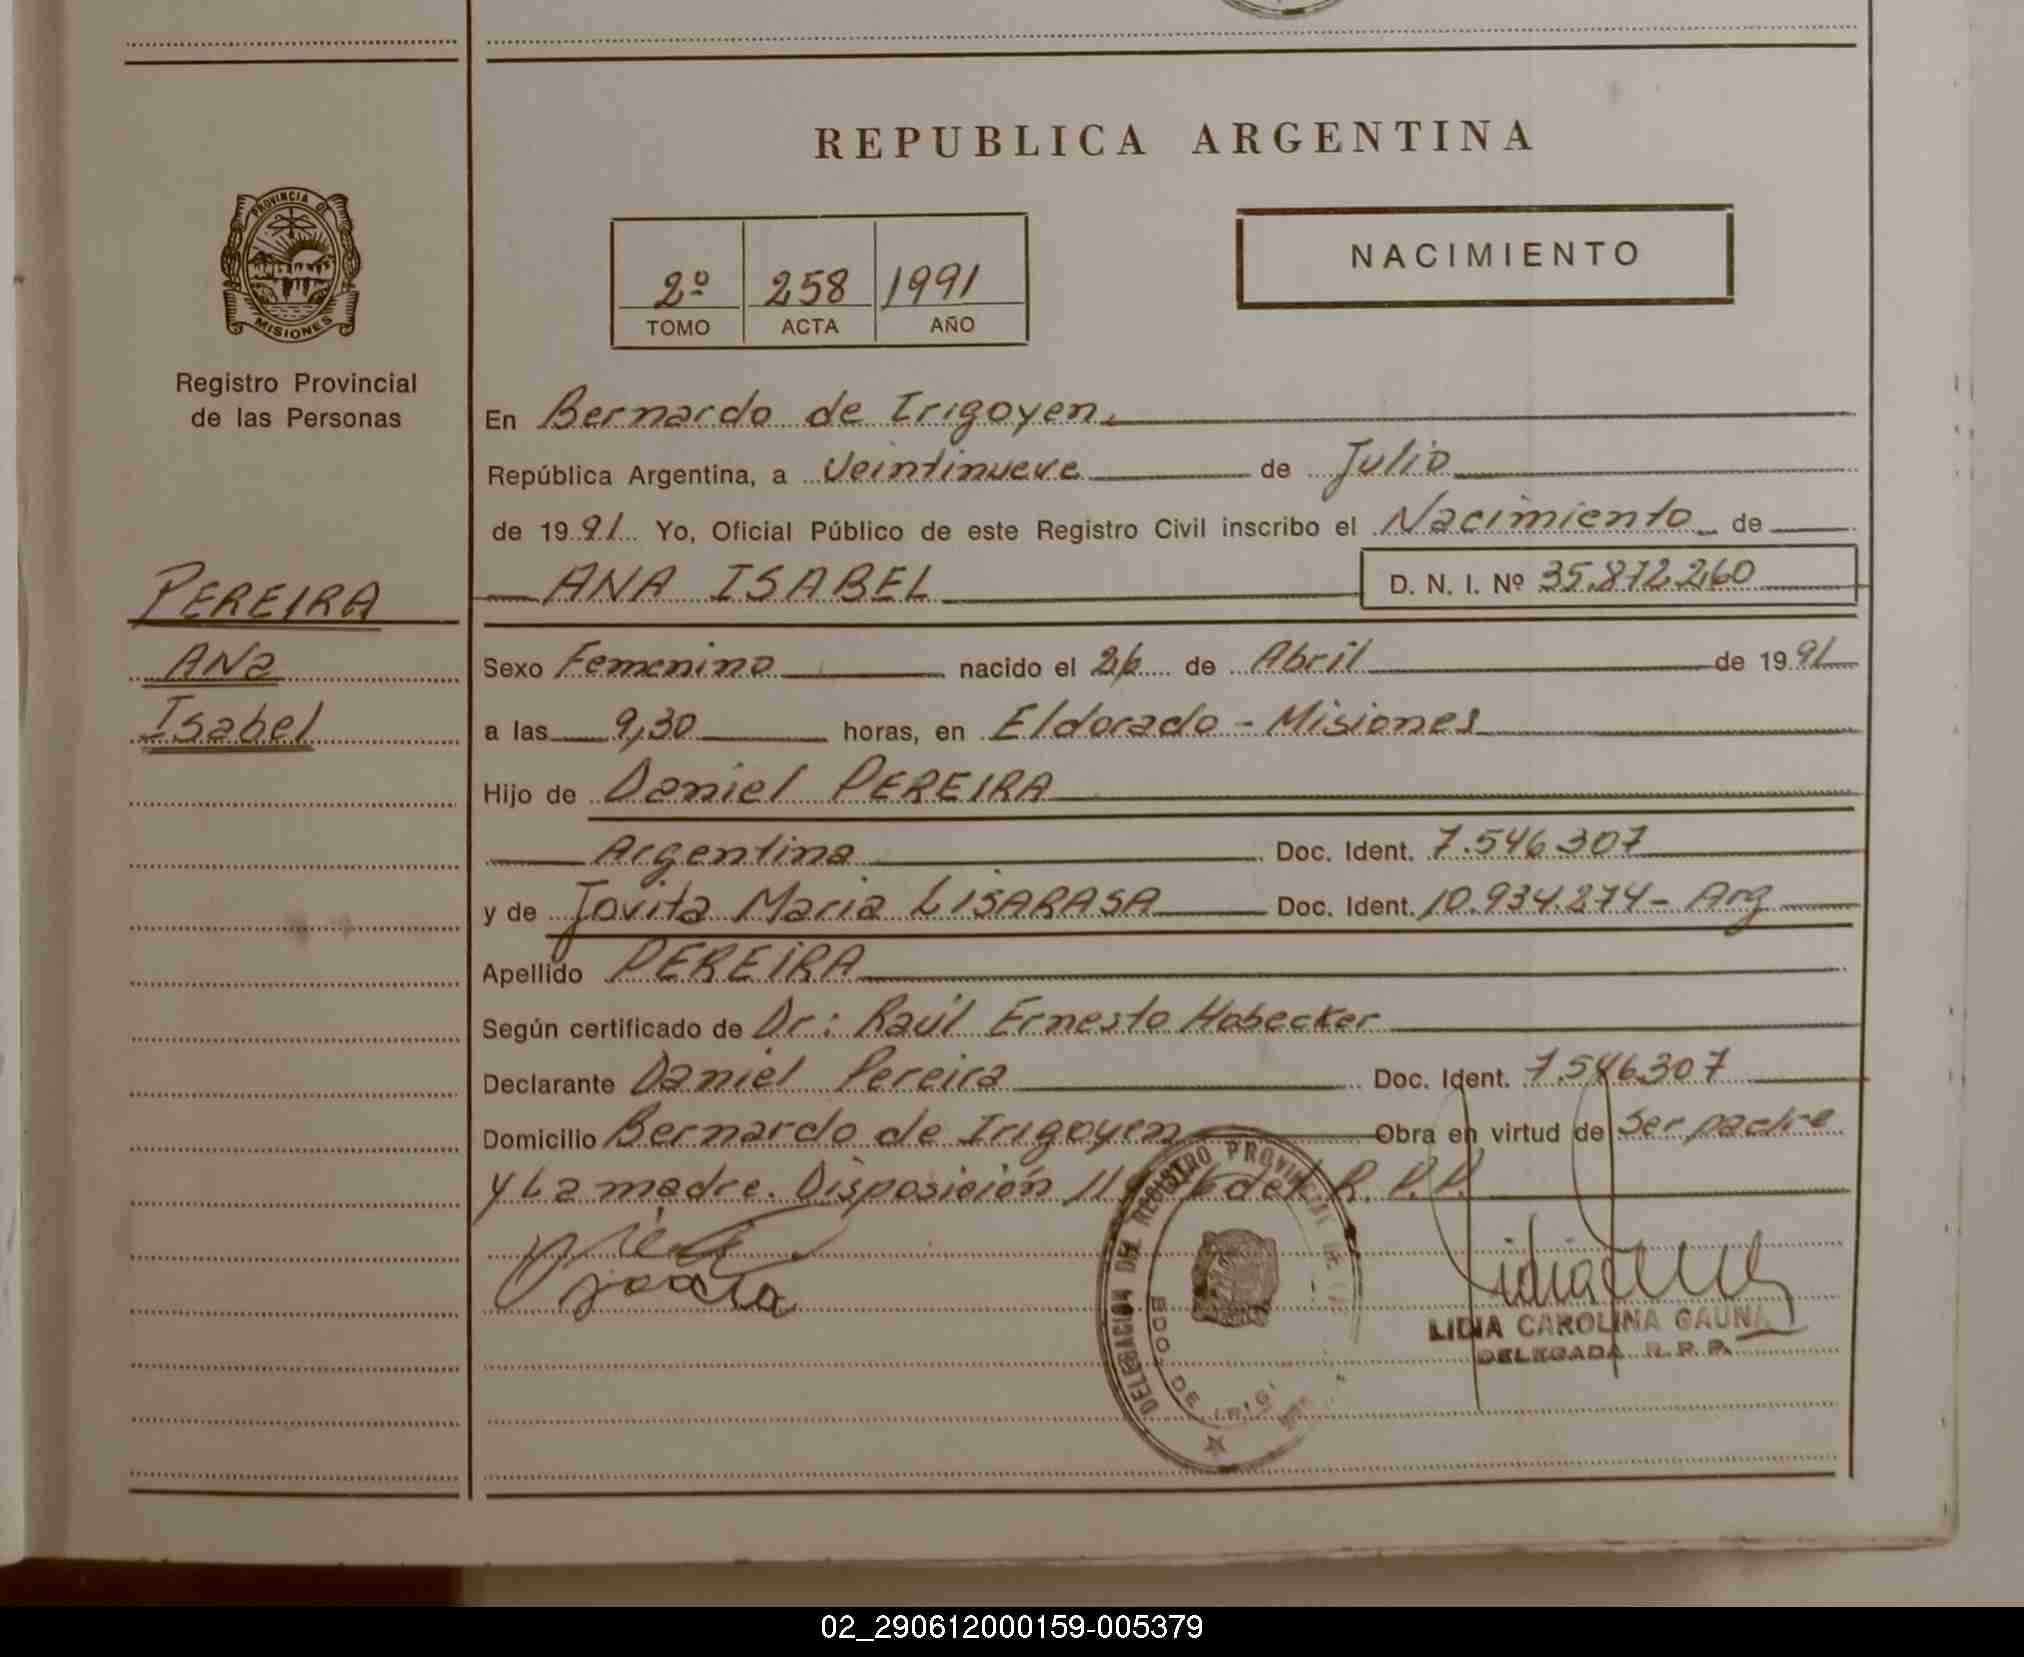 REPUBLICA ARGENTINA
PROVINCIA DE
MISIONES
Registro Provincial
de las Personas
2º 258 1991
TOMO ACTA AÑO
NACIMIENTO
En Bernardo de Irigoyen.
República Argentina, a Veintinueve de Julio
de 1991 Yo, Oficial Público de este Registro Civil inscribo el Nacimiento de
ANA ISABEL D. N. I. Nº 35.872.260
PEREIRA
ANa
Isabel
Sexo Femenino nacido el 26 de Abril de 1991
a las 9,30 horas, en Eldorado - Misiones
Hijo de Daniel PEREIRA
Argentina Doc. Ident. 7.546.307
y de Jovita Maria LISARASA Doc. Ident. 10.934.274 - Arg
Apellido PEREIRA
Según certificado de Dr: Raúl Ernesto Hobecker
Declarante Daniel Pereira Doc. Ident. 7.546.307
Domicilio Bernardo de Irigoyen Obra en virtud de Ser padre
y La madre. Disposición del R. P. P.
DELEGACION DEL REGISTRO PROVINCIAL DE
BDO. DE IRIG
LIDIA CAROLINA GAUNA
DELEGADA R. P. P.
02_290612000159-005379